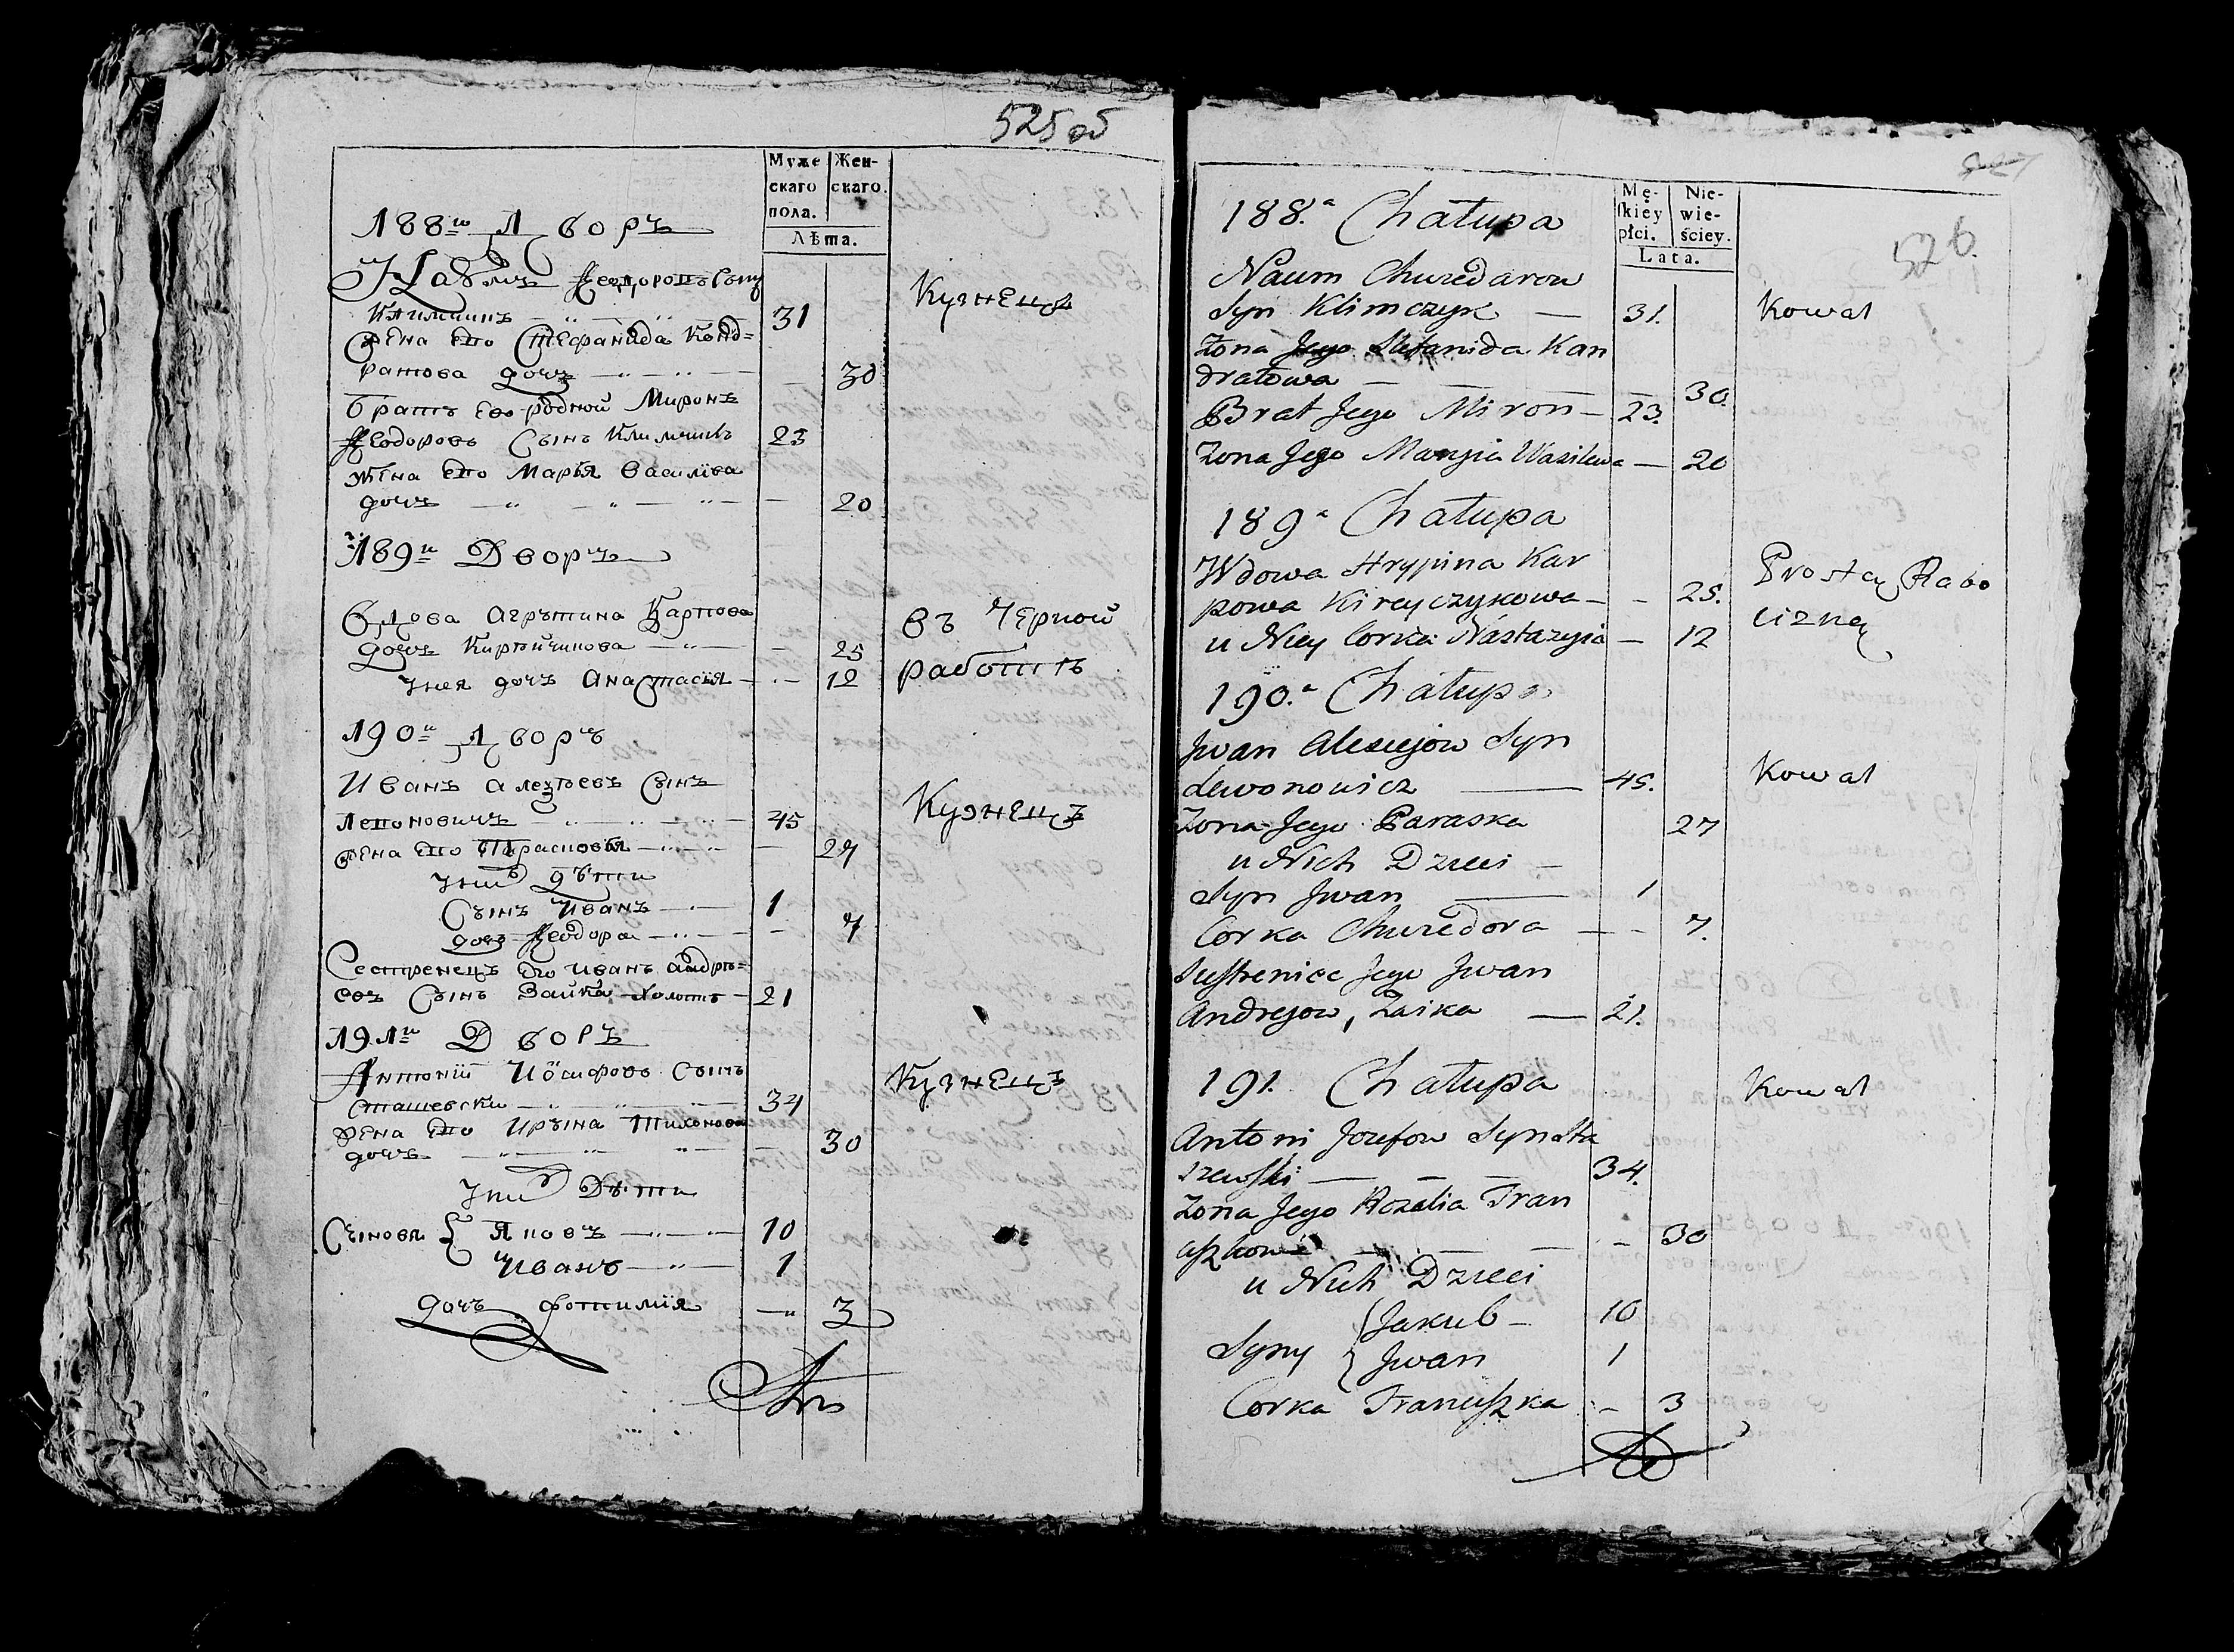 525 об
Муже
скаго
пола.
Жен-
скаго.
Лѣта.
188й Дворъ
Феодоровъ Сынъ
Климчикъ 31 Кузнецъ
Жена Его Стефанида Конд-
ратова дочь 30
братъ Его родной Миронъ
Феодоровъ Сынъ Климчикъ 23
Жена Его Марья Василїва
дочь 20
189й Дворъ
Вдова Агрътина Карпова
дочь Кирѣйчикова 25 въ Черной
Унея дочь Анастасїя 12 работѣ
190й Дворъ
Иванъ Алеѯѣевъ Сынъ
Левоновичъ 45 Кузнецъ
Жена Его Парасковїя 27
Унихъ дѣти
Сынъ Иванъ 1
дочь Феодора 7
Сестренецъ Его Иванъ Андрѣ-
евъ Сынъ Заика Холостъ 21
191й Дворъ
Антонїй Иосифовъ Сынъ Кузнецъ
Сташевски 34
Жена Его Ирына Тихонова
дочь 30
Унихъ Дѣти
Сыновя { Яковъ 10
Иванъ 1
дочь Фотимїя 3
527
526.
Mę-
skiey
płci.
Nie-
wie-
ściey.
Lata.
188.a Chałupa
Naum Chwedarow
Syn Klimczyk — 31. Kowal
Żona Jego Stefanida Kan
dratowa — 30.
Brat Jego Miron — 23.
Żona Jego Maryia Wasilewa — 20
189a Chałupa
Wdowa Hrypina Kar Prostą Rabo
powa Kireyczykowa — 25. cizną
u Niey Corka Nastazyia — 12
190.a Chałupa
Jwan Alesiejow Syn
Lewonowicz — 45. Kowal
Żona Jego Paraska 27
u Nich Dzieci —
Syn Jwan — 1
Corka Chwedora — 7.
Siestreniec Jego Jwan
Andrejow, Zaika — 21.
191. Chałupa Kowal
Antoni Jozefow Syn Sta
szewski — 34.
Żona Jego Rozalia Fran
ciszkowa — 30
u Nich Dzieci
Syny { Jakub — 10
Jwan 1
Corka Franciszka — 3